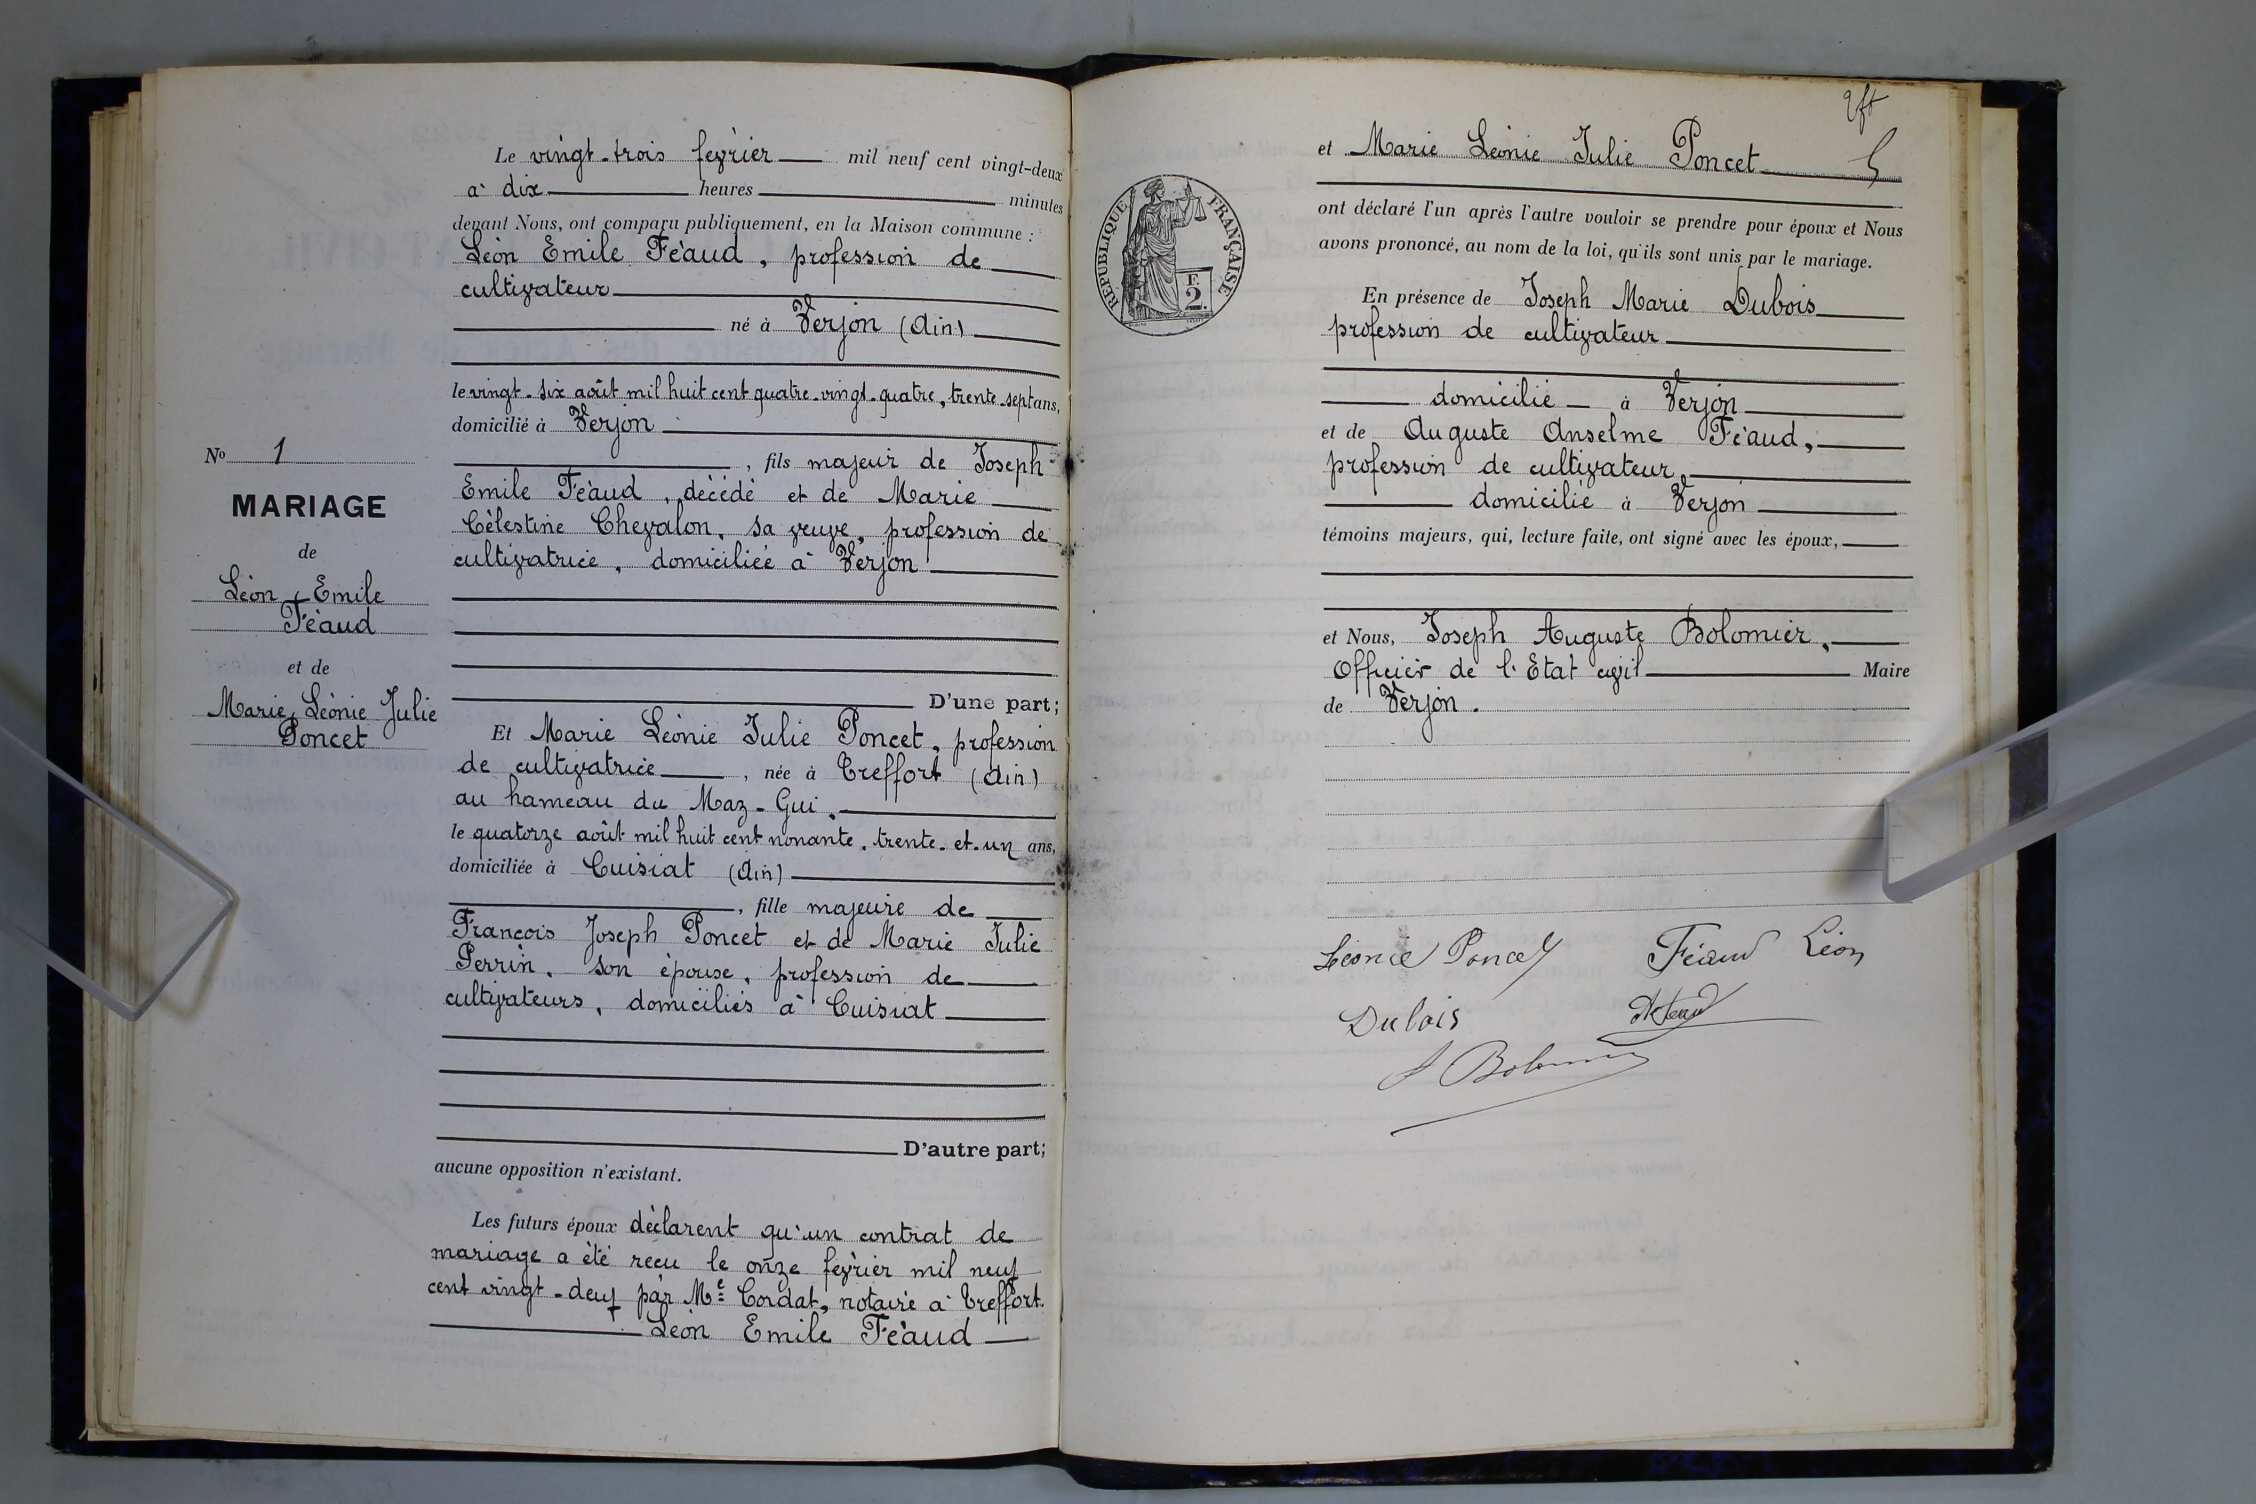 Le vingt-trois février mil neuf cent vingt-deux
à dix heures minutes
devant Nous, ont comparu publiquement, en la Maison commune :
Léon Emile Féaud, profession de
cultivateur
né à Verjon (Ain)
le vingt-six août mil huit cent quatre-vingt-quatre, trente-sept ans,
domicilié à Verjon
, fils majeur de Joseph
Emile Féaud, décédé et de Marie
Célestine Chevalon, sa veuve, profession de
cultivatrice, domiciliée à Verjon
D'une part;
Et Marie Léonie Julie Poncet, profession
de cultivatrice, née à Treffort (Ain)
au hameau du Maz-Gui,
le quatorze août mil huit cent nonante, trente-et-un ans,
domiciliée à Cuisiat (Ain)
, fille majeure de
François Joseph Poncet et de Marie Julie
Perrin, son épouse, profession de
cultivateurs, domiciliés à Cuisiat
D'autre part;
aucune opposition n'existant.
Les futurs époux déclarent qu'un contrat de
mariage a été reçu le onze février mil neuf
cent vingt-deux par Me Cordat, notaire à Treffort.
Léon Emile Féaud
No 1
MARIAGE
de
Léon Emile
Féaud
et de
Marie Léonie Julie
Poncet
5
et Marie Léonie Julie Poncet
RÉPUBLIQUE FRANÇAISE
F.
2.
ont déclaré l'un après l'autre vouloir se prendre pour époux et Nous
avons prononcé, au nom de la loi, qu'ils sont unis par le mariage.
En présence de Joseph Marie Dubois
profession de cultivateur
domicilié à Verjon
et de Auguste Anselme Féaud,
profession de cultivateur
domicilié à Verjon
témoins majeurs, qui, lecture faite, ont signé avec les époux,
et Nous, Joseph Auguste Bolomier,
Officier de l'Etat civil Maire
de Verjon.
Léonie Poncet Féaud Léon
Dubois A Feaud
A Bolomier